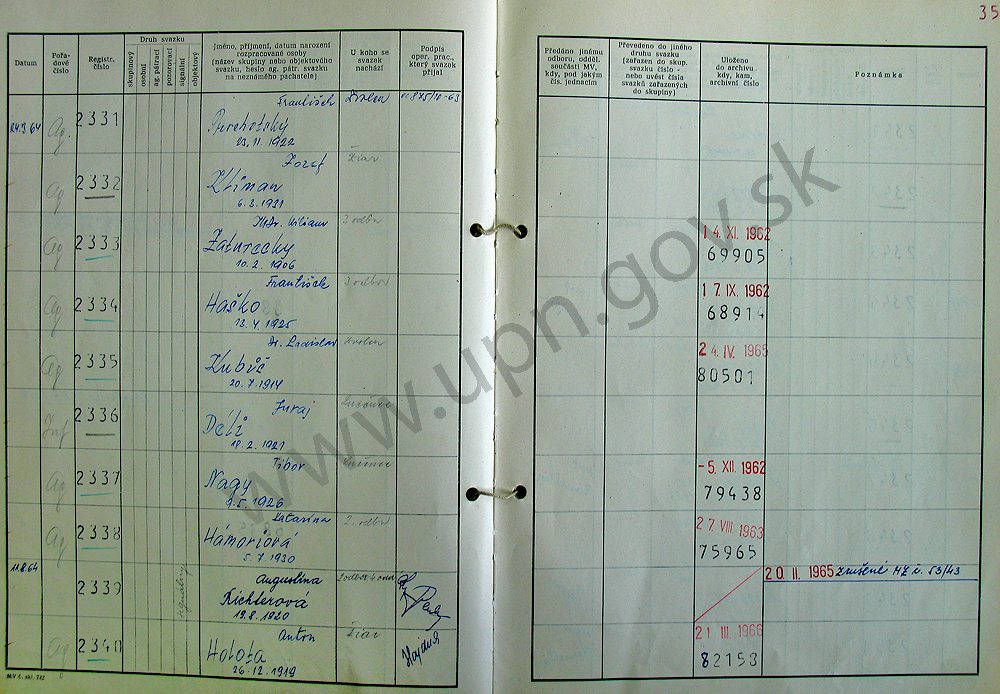 35
Datum
Pořadové číslo
Registr. číslo
Druh svazku
skupinový
osobní
ag. pátrací
pozorovací
signální
objektový
Jméno, příjmení, datum narození
rozpracované osoby
(název skupiny nebo objektového
svazku, heslo ag. pátr. svazku
na neznámého pachatele)
U koho se
svazek
nachází
Podpis
oper. prac.,
který svazek
přijal
Předáno jinému
odboru, odděl.
součásti MV,
kdy, pod jakým
čís. jednacím
Převedeno do jiného
druhu svazku
(zařazen do skup.
svazku číslo -
nebo uvést čísla
svazků zařazených
do skupiny)
Uloženo
do archivu
kdy, kam,
archivní číslo
Poznámka
Ag. 2331 František Zvolen
23.11.1922
Ag 2332 Jozef Žiar
Kliman
6.3.1931
Ag 2333 3 odbor 14. XI. 1962
Záturecky 69905
10.2.1906
Ag 2334 František 3 odbor 17. IX. 1962
Haško 68914
13.4.1925
Ag 2335 Dr. Ladislav Zvolen 24. IV. 1965
Zubúč 80501
20.7.1914
Inf 2336 Juraj
Déli
18.2.1921
Ag 2337 Tibor -5. XII. 1962
Nagy 79438
9.5.1926
Ag 2338 Katarína 2. odbor 27 VIII 1963
Hámoriová 75965
5.7.1930
11.8.64 2339 signální Augustína 20. II. 1965 zrušené
Richterová
19.8.1920
Ag 2340 Anton Žiar Hajduk 21 III 1966
Holota 82158
26.12.1919
www.upn.gov.sk